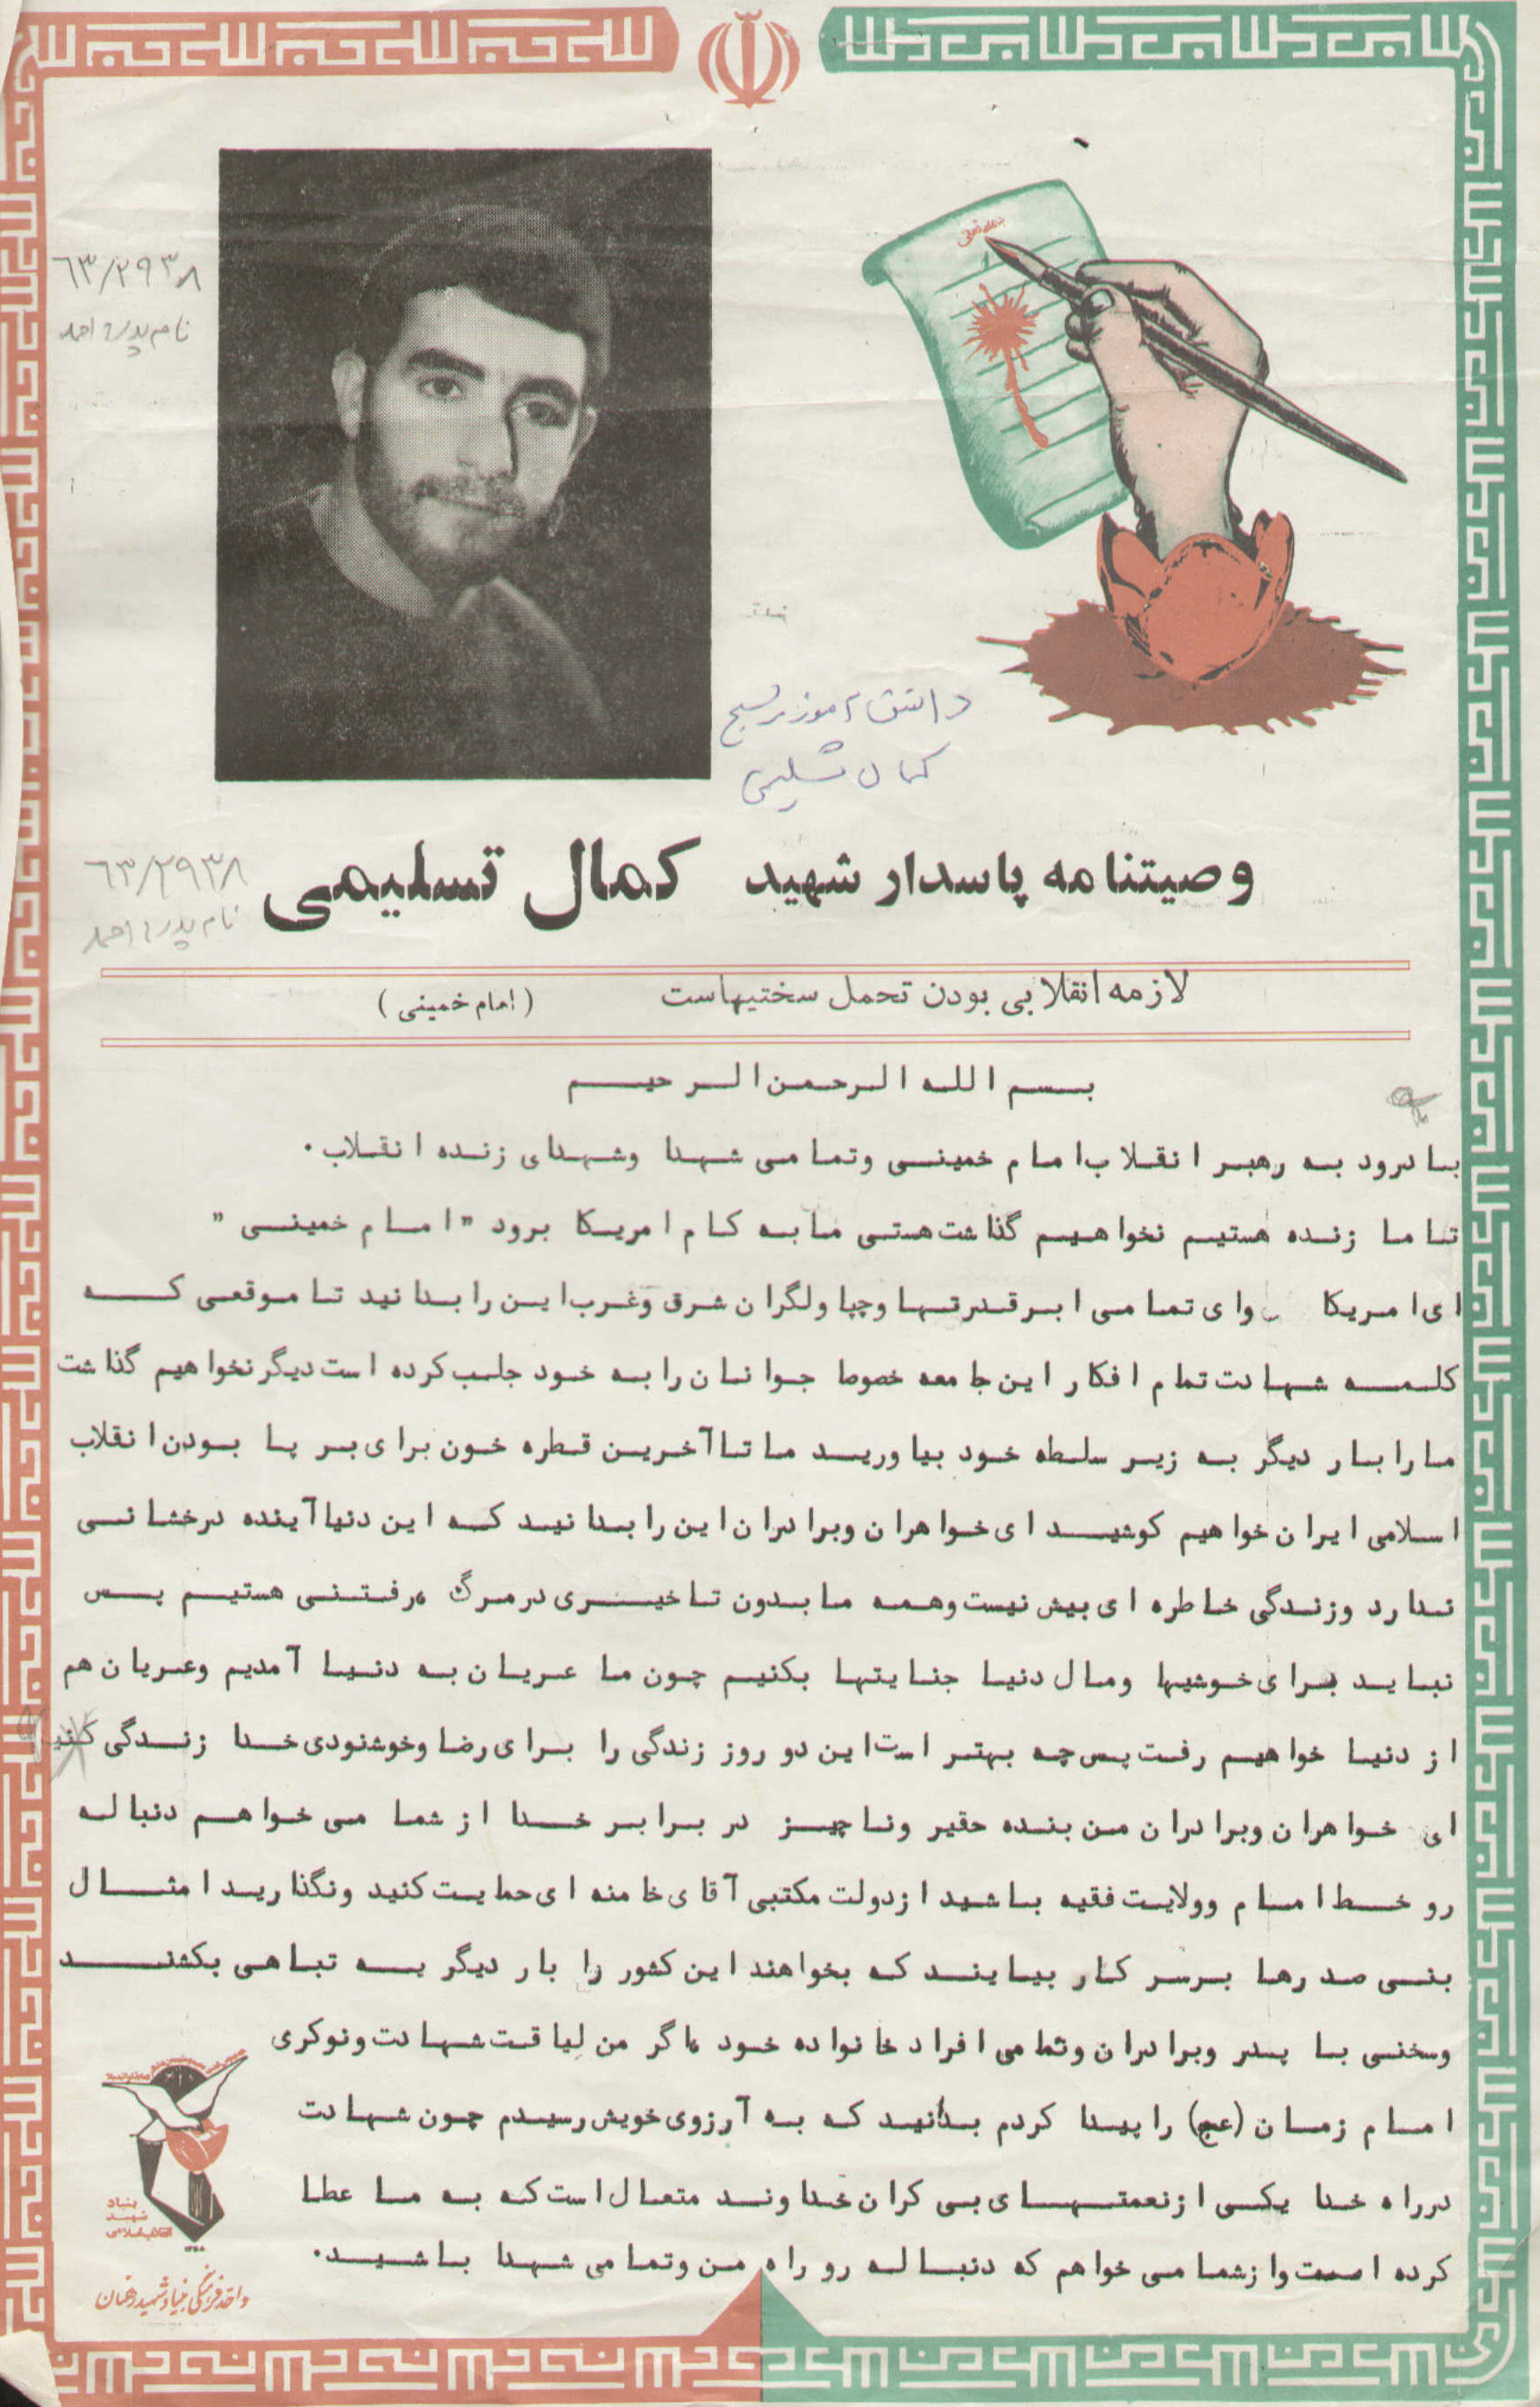 ۶۳/۲۹۳۸
نام پدر: احمد
دانش آموز بسیج
کمال تسلیمی
وصیتنامه پاسدار شهید کمال تسلیمی
۶۳/۲۹۳۸
نام پدر: احمد
لازمه انقلابی بودن تحمل سختیهاست (امام خمینی)
بسم الله الرحمن الرحیم
با درود به رهبر انقلاب امام خمینی وتمامی شهدا وشهدای زنده انقلاب.
تا ما زنده هستیم نخواهیم گذاشت هستی ما به کام امریکا برود "امام خمینی"
ای امریکا وای تمامی ابرقدرتها وچپاولگران شرق وغرب این را بدانید تا موقعی که
کلمه شهادت تمام افکار این جامعه خصوصا جوانان را به خود جلب کرده است دیگر نخواهیم گذاشت
ما را بار دیگر به زیر سلطه خود بیاورید ما تا آخرین قطره خون برای بر پا بودن انقلاب
اسلامی ایران خواهیم کوشید ای خواهران وبرادران این را بدانید که این دنیا آینده درخشانی
ندارد وزندگی خاطره ای بیش نیست وهمه ما بدون تاخیری در مرگ، رفتنی هستیم پس
نباید برای خوشیها ومال دنیا جنایتها بکنیم چون ما عریان به دنیا آمدیم وعریان هم
از دنیا خواهیم رفت پس چه بهتر است این دو روز زندگی را برای رضا وخوشنودی خدا زندگی کنیم
ای خواهران وبرادران من بنده حقیر وناچیز در برابر خدا از شما می خواهم دنباله
رو خط امام وولایت فقیه باشید از دولت مکتبی آقای خامنه ای حمایت کنید ونگذارید امثال
بنی صدرها برسر کار بیایند که بخواهند این کشور را بار دیگر به تباهی بکشند
وسخنی با پدر وبرادران وتمامی افراد خانواده خود، اگر من لیاقت شهادت ونوکری
امام زمان (عج) را پیدا کردم بدانید که به آرزوی خویش رسیدم چون شهادت
در راه خدا یکی از نعمتهای بی کران خداوند متعال است که به ما عطا
کرده است واز شما می خواهم که دنباله رو راه من وتمامی شهدا باشید.
بنیاد
شهید
انقلاب اسلامی
واحد فرهنگی بنیاد شهید